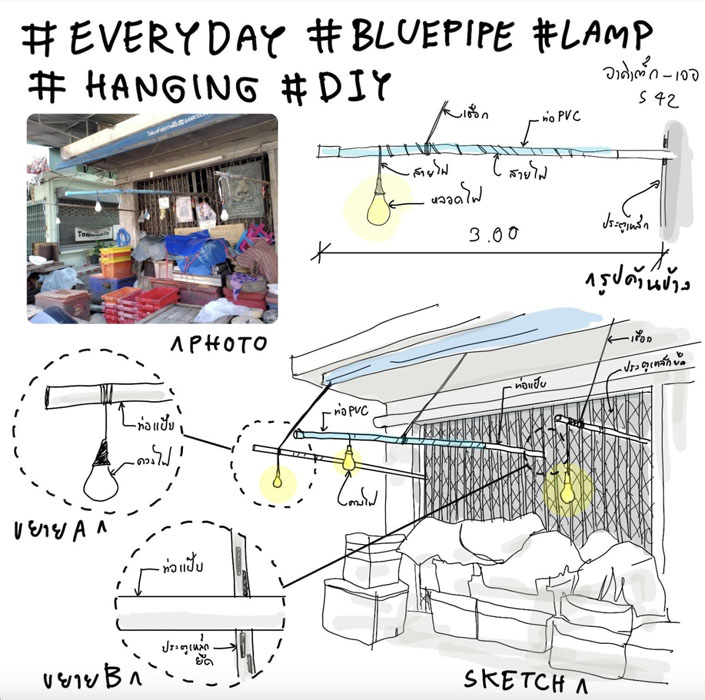 #EVERYDAY #BLUEPIPE #LAMP
# HANGING #DIY
อาคิเต็ก-เจอ
S 42
เชือก
ท่อ PVC
สายไฟ
สายไฟ
หลอดไฟ
ประตูเหล็ก
3.00
^รูปด้านข้าง
^PHOTO
เชือก
ประตูเหล็กยืด
ท่อแป๊บ
ท่อ PVC
ท่อแป๊บ
ดวงไฟ
ดวงไฟ
ขยาย A ^
ท่อแป๊บ
ประตูเหล็ก
ยืด
ขยาย B ^
SKETCH ^